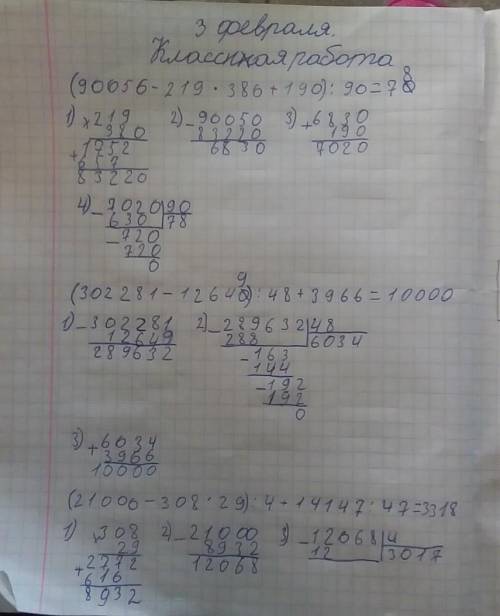 3 февраля.
Классная работа
(90056-219·386+190):90=78
1) ×219 2) -90050 3) +6830
380 83220 190
+1752 6830 7020
657
83220
4) -9020|90
630 78
-720
720
0
(302281-12649):48+3966=10000
1) -302281 2) -289632|48
12649 288 6034
289632 -163
144
-192
192
0
3) +6034
3966
10000
(21000-308·29):4+14147:47=3318
1) ×308 2) -21000 3) -12068|4
29 8932 12 3017
+2772 12068
616
8932